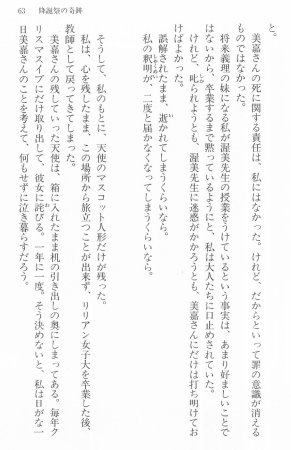 63　降誕祭の奇跡
と。
　美嘉さんの死に関する責任は、私にはなかった。けれど、だからといって罪の意識が消える
ものではなかった。
　将来義理の妹になる私が渥美先生の授業をうけているという事実は、あまり好ましいことで
はないから、卒業するまで黙っているようにと、私は大人たちに口止めされていた。
　けれど、叱られようとも、渥美先生に迷惑がかかろうとも、美嘉さんにだけは打ち明けてお
けばよかった。
　誤解されたまま、逝かれてしまうくらいなら。
　私の釈明が、二度と届かなくなってしまうくらいなら。
　そうして、私のもとに、天使のマスコット人形だけが残った。
　私は、心を残したまま、この場所から旅立つことが出来ず、リリアン女子大を卒業した後、
教師として戻ってきてしまった。
　美嘉さんの残していった天使は、箱に入れたまま机の引き出しの奥にしまってある。毎年ク
リスマスイブにだけ取り出して、彼女に詫びる。一年に一度。そう決めないと、私は日がな一
日美嘉さんのことを考えて、何もせずに泣き暮らすだろう。